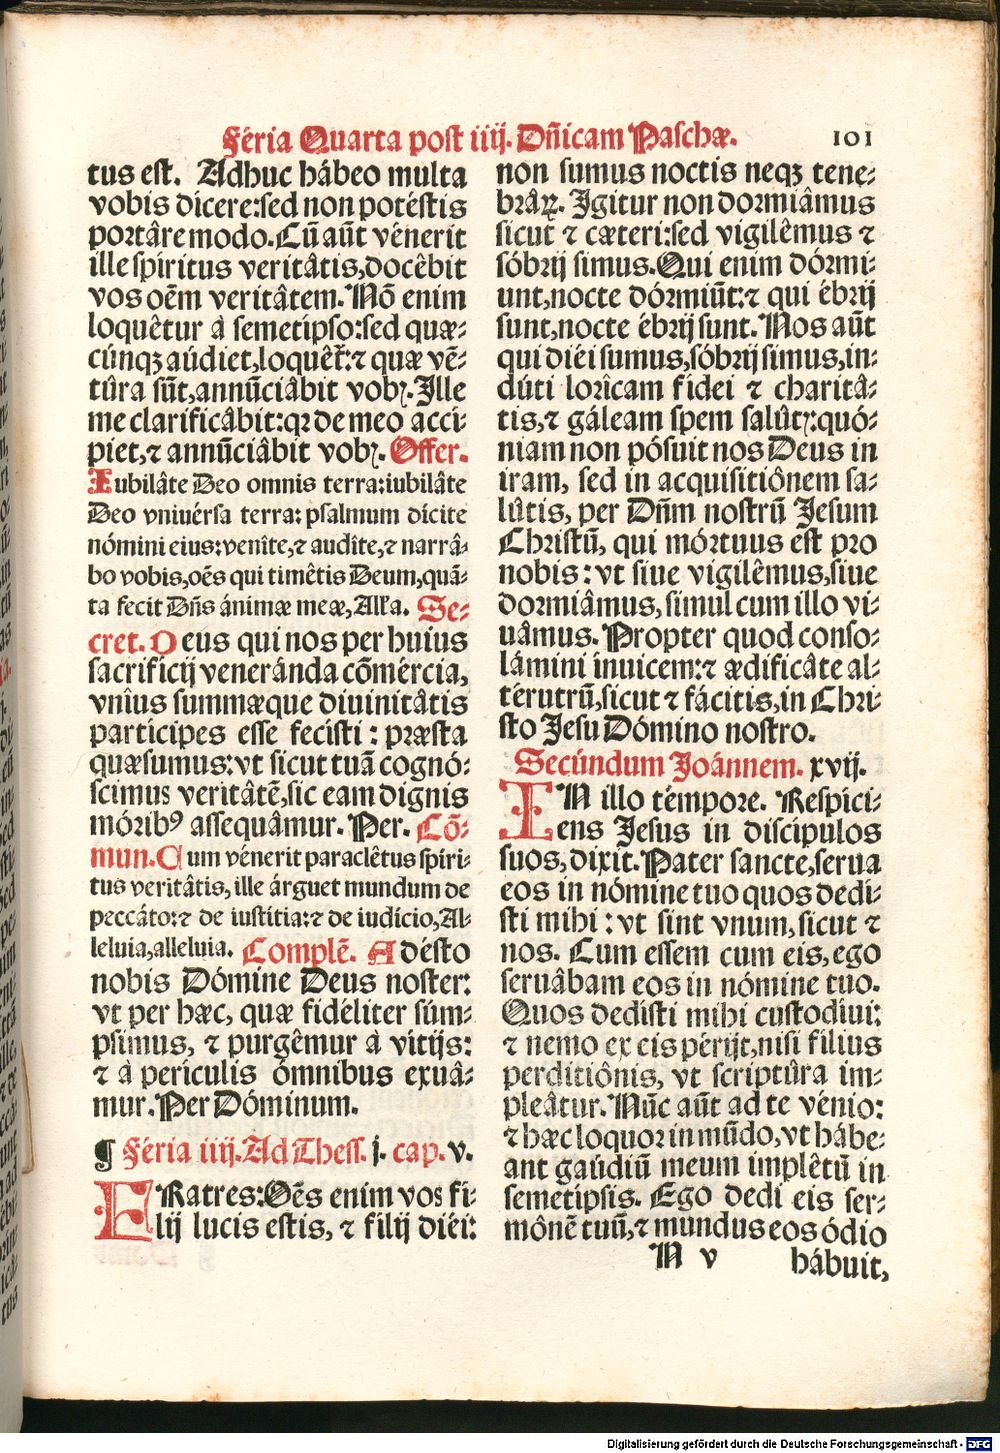 Féria Quarta post iiij. Dñicam Paschæ. 101
tus est. Adhuc hábeo multa
vobis dícere:sed non potéstis
portâre modo. Cũ aũt vénerit
ille spíritus veritâtis, docêbit
vos oẽm veritâtem. Nõ enim
loquêtur à semetipso:sed quæ-
cúnqꝫ aúdiet, loquêt̃:⁊ quæ vẽ-
tûra sũt, annũciâbit vobꝭ. Ille
me clarificâbit:qꝛ de meo accí-
piet, ⁊ annũciâbit vobꝭ. Offer.
Iubilâte Deo omnis terra:iubilâte
Deo vniuérsa terra: psalmum dícite
nómini eius:venîte, ⁊ audîte, ⁊ narrâ-
bo vobis, oẽs qui timêtis Deum, quã-
ta fecit Dñs ánimæ meæ, Alľa. Se-
cret. Deus qui nos per huius
sacrificij veneránda cõmércia,
vnîus summæque diuinitâtis
partícipes esse fecísti : præsta
quæsumus:vt sicut tuã cognó-
scimus veritâtẽ, sic eam dignis
móribꝰ assequâmur. Per. Cõ-
mun. Cum vénerit paraclêtus spíri-
tus veritâtis, ille árguet mundum de
peccâto:⁊ de iustítia:⁊ de iudício, Al-
leluia, alleluia. Complẽ. Adésto
nobis Dómine Deus noster:
vt per hæc, quæ fidéliter súm-
psimus, ⁊ purgêmur à vitijs:
⁊ à perículis ómnibus exuâ-
mur. Per Dóminum.
¶ Féria iiij. Ad Thess. j. cap. v.
FRatres: Oẽs enim vos fi-
lij lucis estis, ⁊ filij diéi:
non sumus noctis neqꝫ tene-
brâꝝ. Igitur non dormiâmus
sicut ⁊ cæteri:sed vigilêmus ⁊
sóbrij simus. Qui enim dórmi-
unt, nocte dórmiũt:⁊ qui ébrij
sunt, nocte ébrij sunt. Nos aũt
qui diéi sumus, sóbrij simus, in-
dúti lorîcam fidei ⁊ charitâ-
tis, ⁊ gáleam spem salûtꝭ:quó-
niam non pósuit nos Deus in
iram, sed in acquisitiônem sa-
lûtis, per Dñm nostrũ Jesum
Christũ, qui mórtuus est pro
nobis : vt siue vigilêmus, siue
dormiâmus, simul cum illo vi-
uâmus. Propter quod conso-
lámini ínuicem:⁊ ædificâte al-
térutrũ, sicut ⁊ fácitis, in Chri-
sto Jesu Dómino nostro.
Secúndum Joánnem. xvij.
IN illo témpore. Respíci-
ens Jesus in discípulos
suos, dixit. Pater sancte, serua
eos in nómine tuo quos dedí-
sti mihi : vt sint vnum, sicut ⁊
nos. Cum essem cum eis, ego
seruâbam eos in nómine tuo.
Quos dedísti mihi custodíui:
⁊ nemo ex eis périjt, nisi filius
perditiônis, vt scriptûra im-
pleâtur. Nũc aũt ad te vénio:
⁊ hæc loquor in mũdo, vt hábe-
ant gaúdiũ meum implêtũ in
semetípsis. Ego dedi eis ser-
mônẽ tuũ, ⁊ mundus eos ódio
N v hábuit,
Digitalisierung gefördert durch die Deutsche Forschungsgemeinschaft - DFG